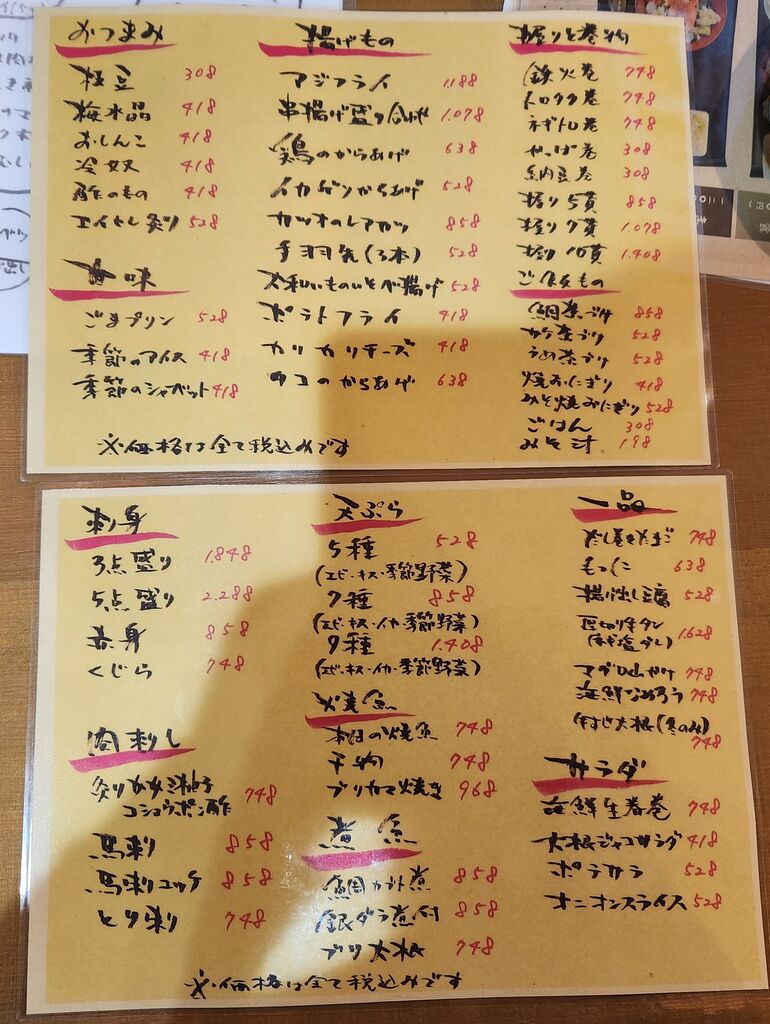 おつまみ
枝豆 308
梅水晶 418
おしんこ 418
冷奴 418
酢のもの 418
エイヒレ炙り 528
甘味
ごまプリン 528
季節のアイス 418
季節のシャーベット 418
揚げもの
アジフライ 1.188
串揚げ盛り合わせ 1.078
鶏のからあげ 638
イカゲソからあげ 528
カツオのレアカツ 858
手羽先(3本) 528
大和いものいそべ揚げ 528
ポテトフライ 418
カリカリチーズ 418
タコのからあげ 638
握りと巻物
鉄火巻 748
トロタク巻 748
ネギトロ巻 748
かっぱ巻 308
納豆巻 308
握り5貫 858
握り7貫 1.078
握り10貫 1.408
ご飯もの
鯛茶づけ 858
サケ茶づけ 528
うめ茶づけ 528
焼おにぎり 418
みそ焼おにぎり 528
ごはん 308
みそ汁 198
※価格は全て税込みです
刺身
3点盛り 1.848
5点盛り 2.288
赤身 858
くじら 748
肉刺し
炙りガツ刺柚子
コショウポン酢 748
馬刺 858
馬刺ユッケ 858
とり刺 748
天ぷら
5種 528
(エビ・キス・季節野菜)
7種 858
(エビ・キス・イカ・季節野菜)
9種 1.408
(エビ・キス・イカ・季節野菜)
焼魚
本日の焼魚 748
干物 748
ブリカマ焼き 968
煮魚
鯛カブト煮 858
銀ダラ煮付 858
ブリ大根 748
一品
だし巻きたまご 748
もつに 638
揚げ出し豆腐 528
厚切り牛タン
(ねぎ塩ダレ) 1.628
マグロ山かけ 748
海鮮なめろう 748
牛すじ大根(冬のみ)
748
サラダ
海鮮生春巻 748
大根ジャコサラダ 418
ポテサラ 528
オニオンスライス 528
※価格は全て税込みです